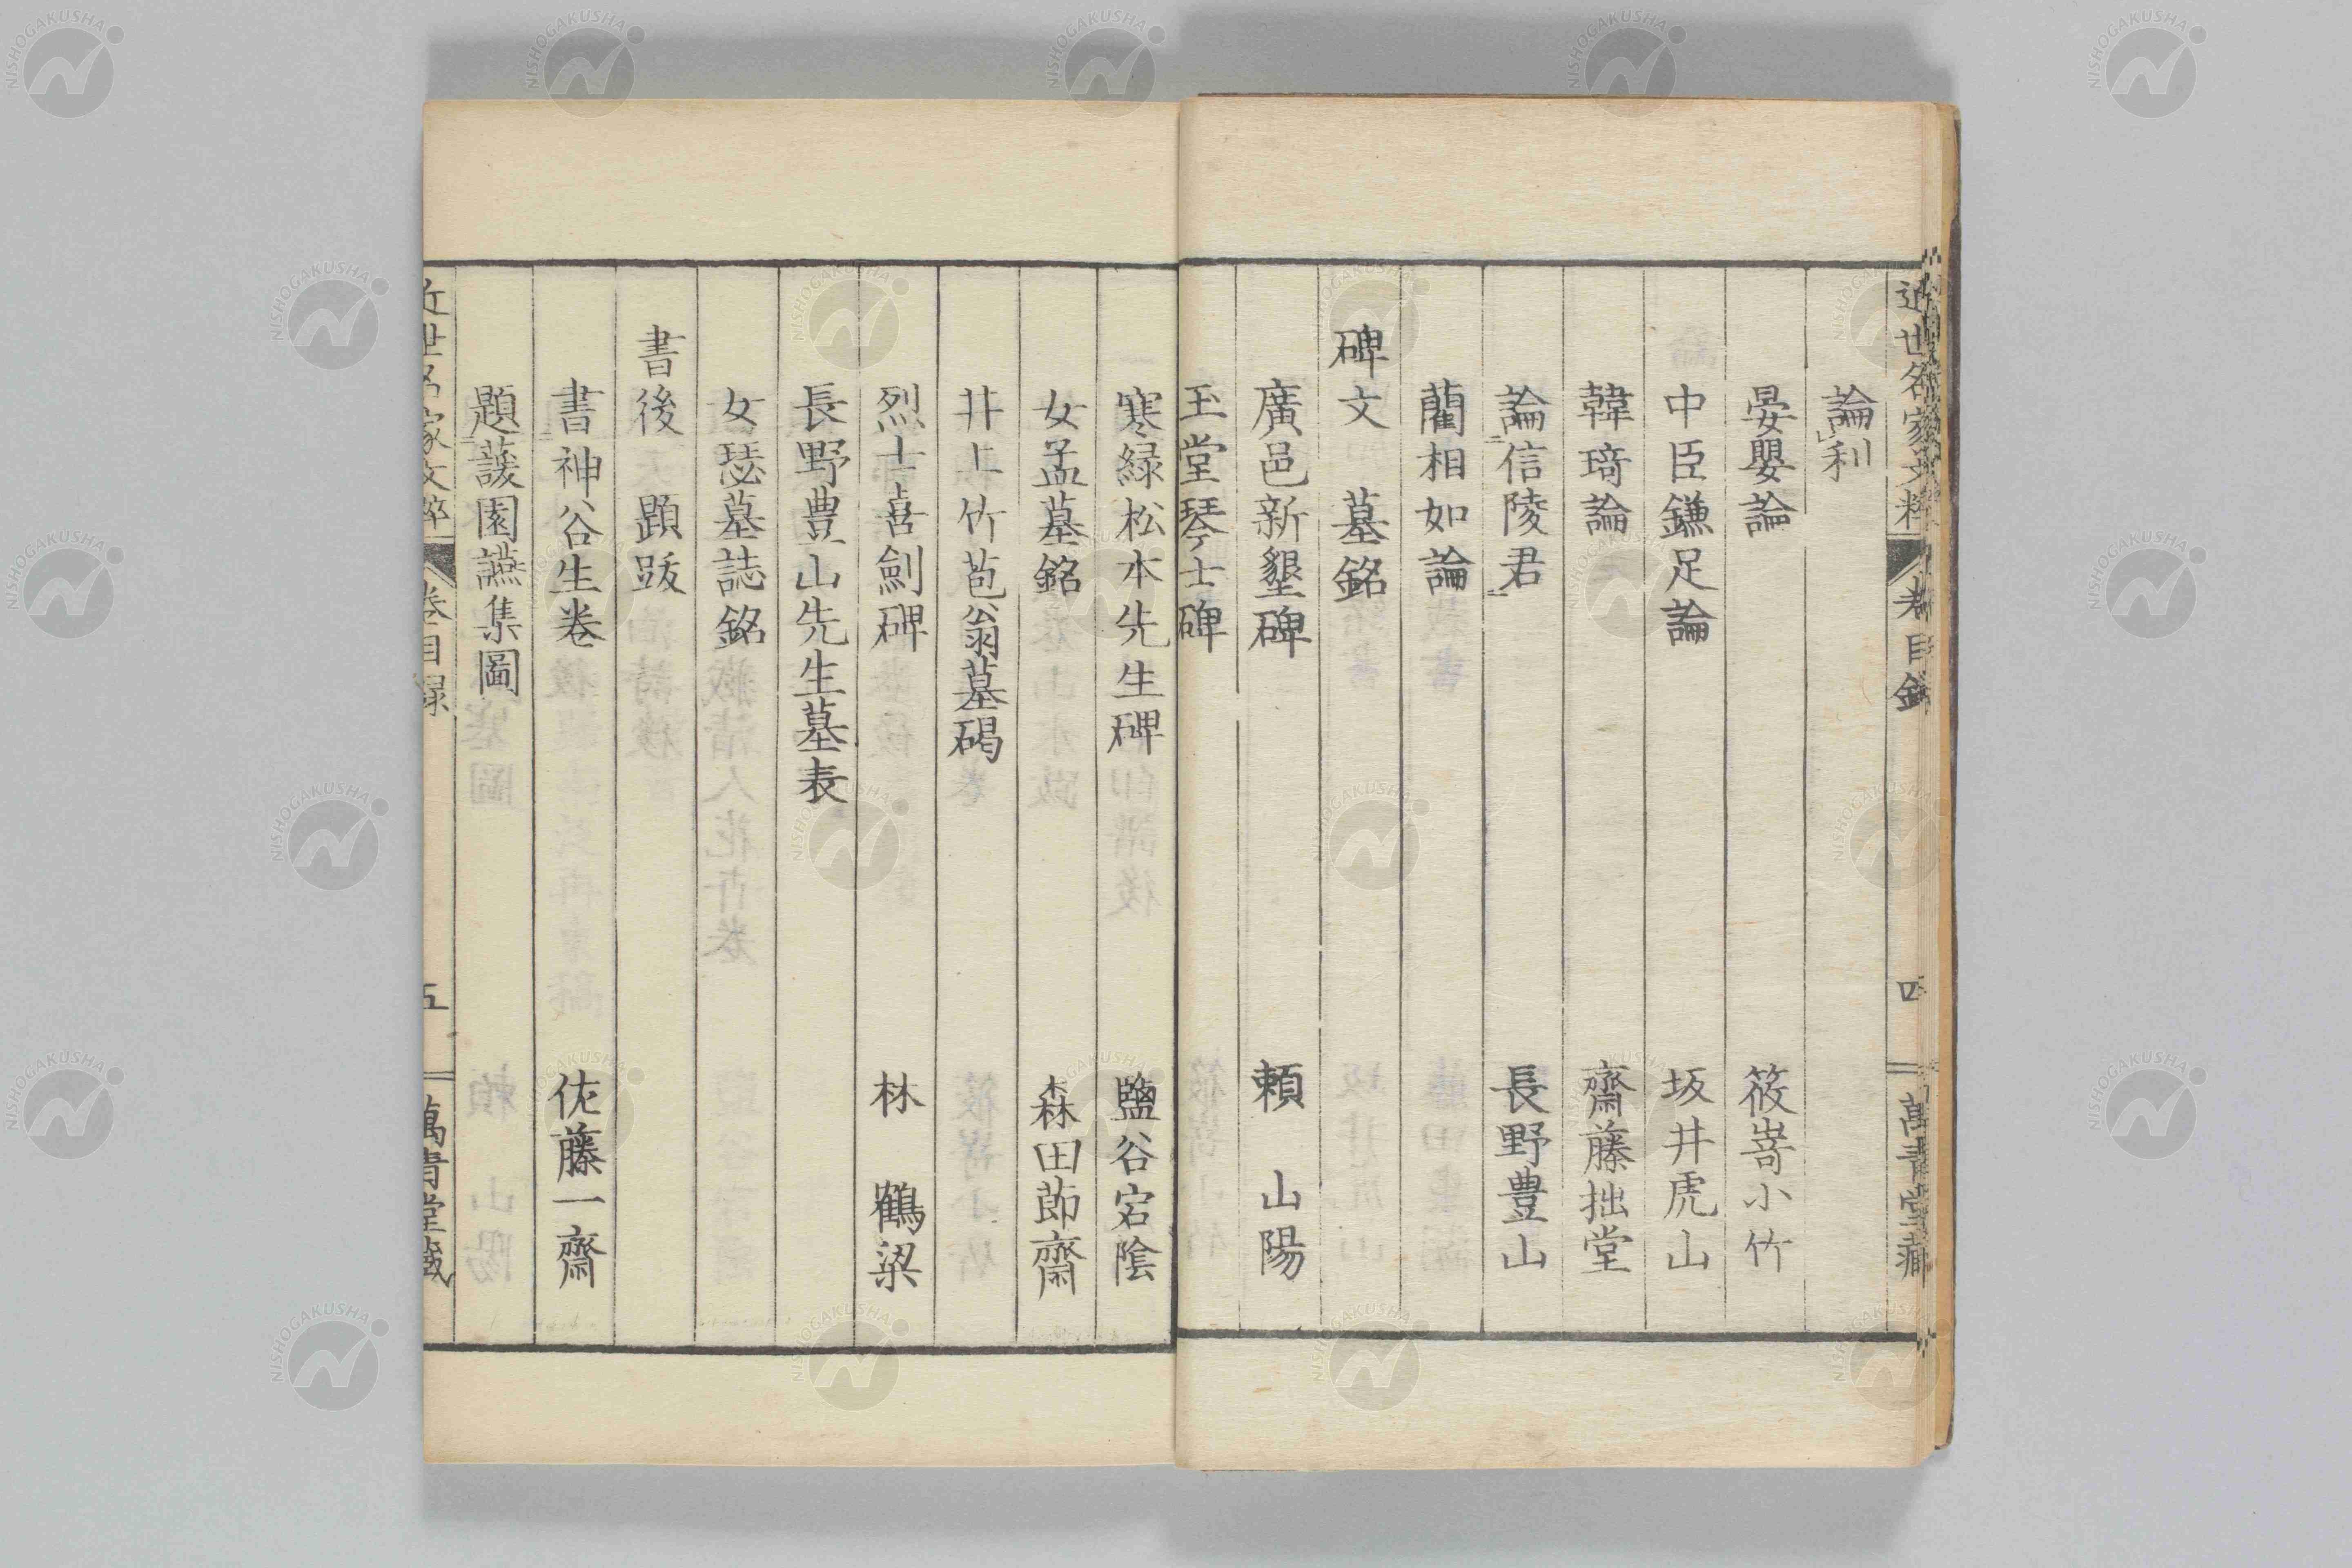 近世名家文粹 卷目錄 四 萬青堂藏
論利
晏嬰論 筱嵜小竹
中臣鎌足論 坂井虎山
韓琦論 齋藤拙堂
論信陵君 長野豊山
藺相如論
碑文 墓銘
廣邑新墾碑 賴 山陽
玉堂琴士碑
寒緑松本先生碑 鹽谷宕陰
女孟墓銘 森田節齋
井上竹苞翁墓碣
烈士喜劍碑 林 鶴梁
長野豊山先生墓表
女瑟墓誌銘
書後 題跋
書神谷生卷 佐藤一齋
題蘐園讌集圖
近世名家文粹 卷目録 五 萬青堂藏
NISHOGAKUSHA